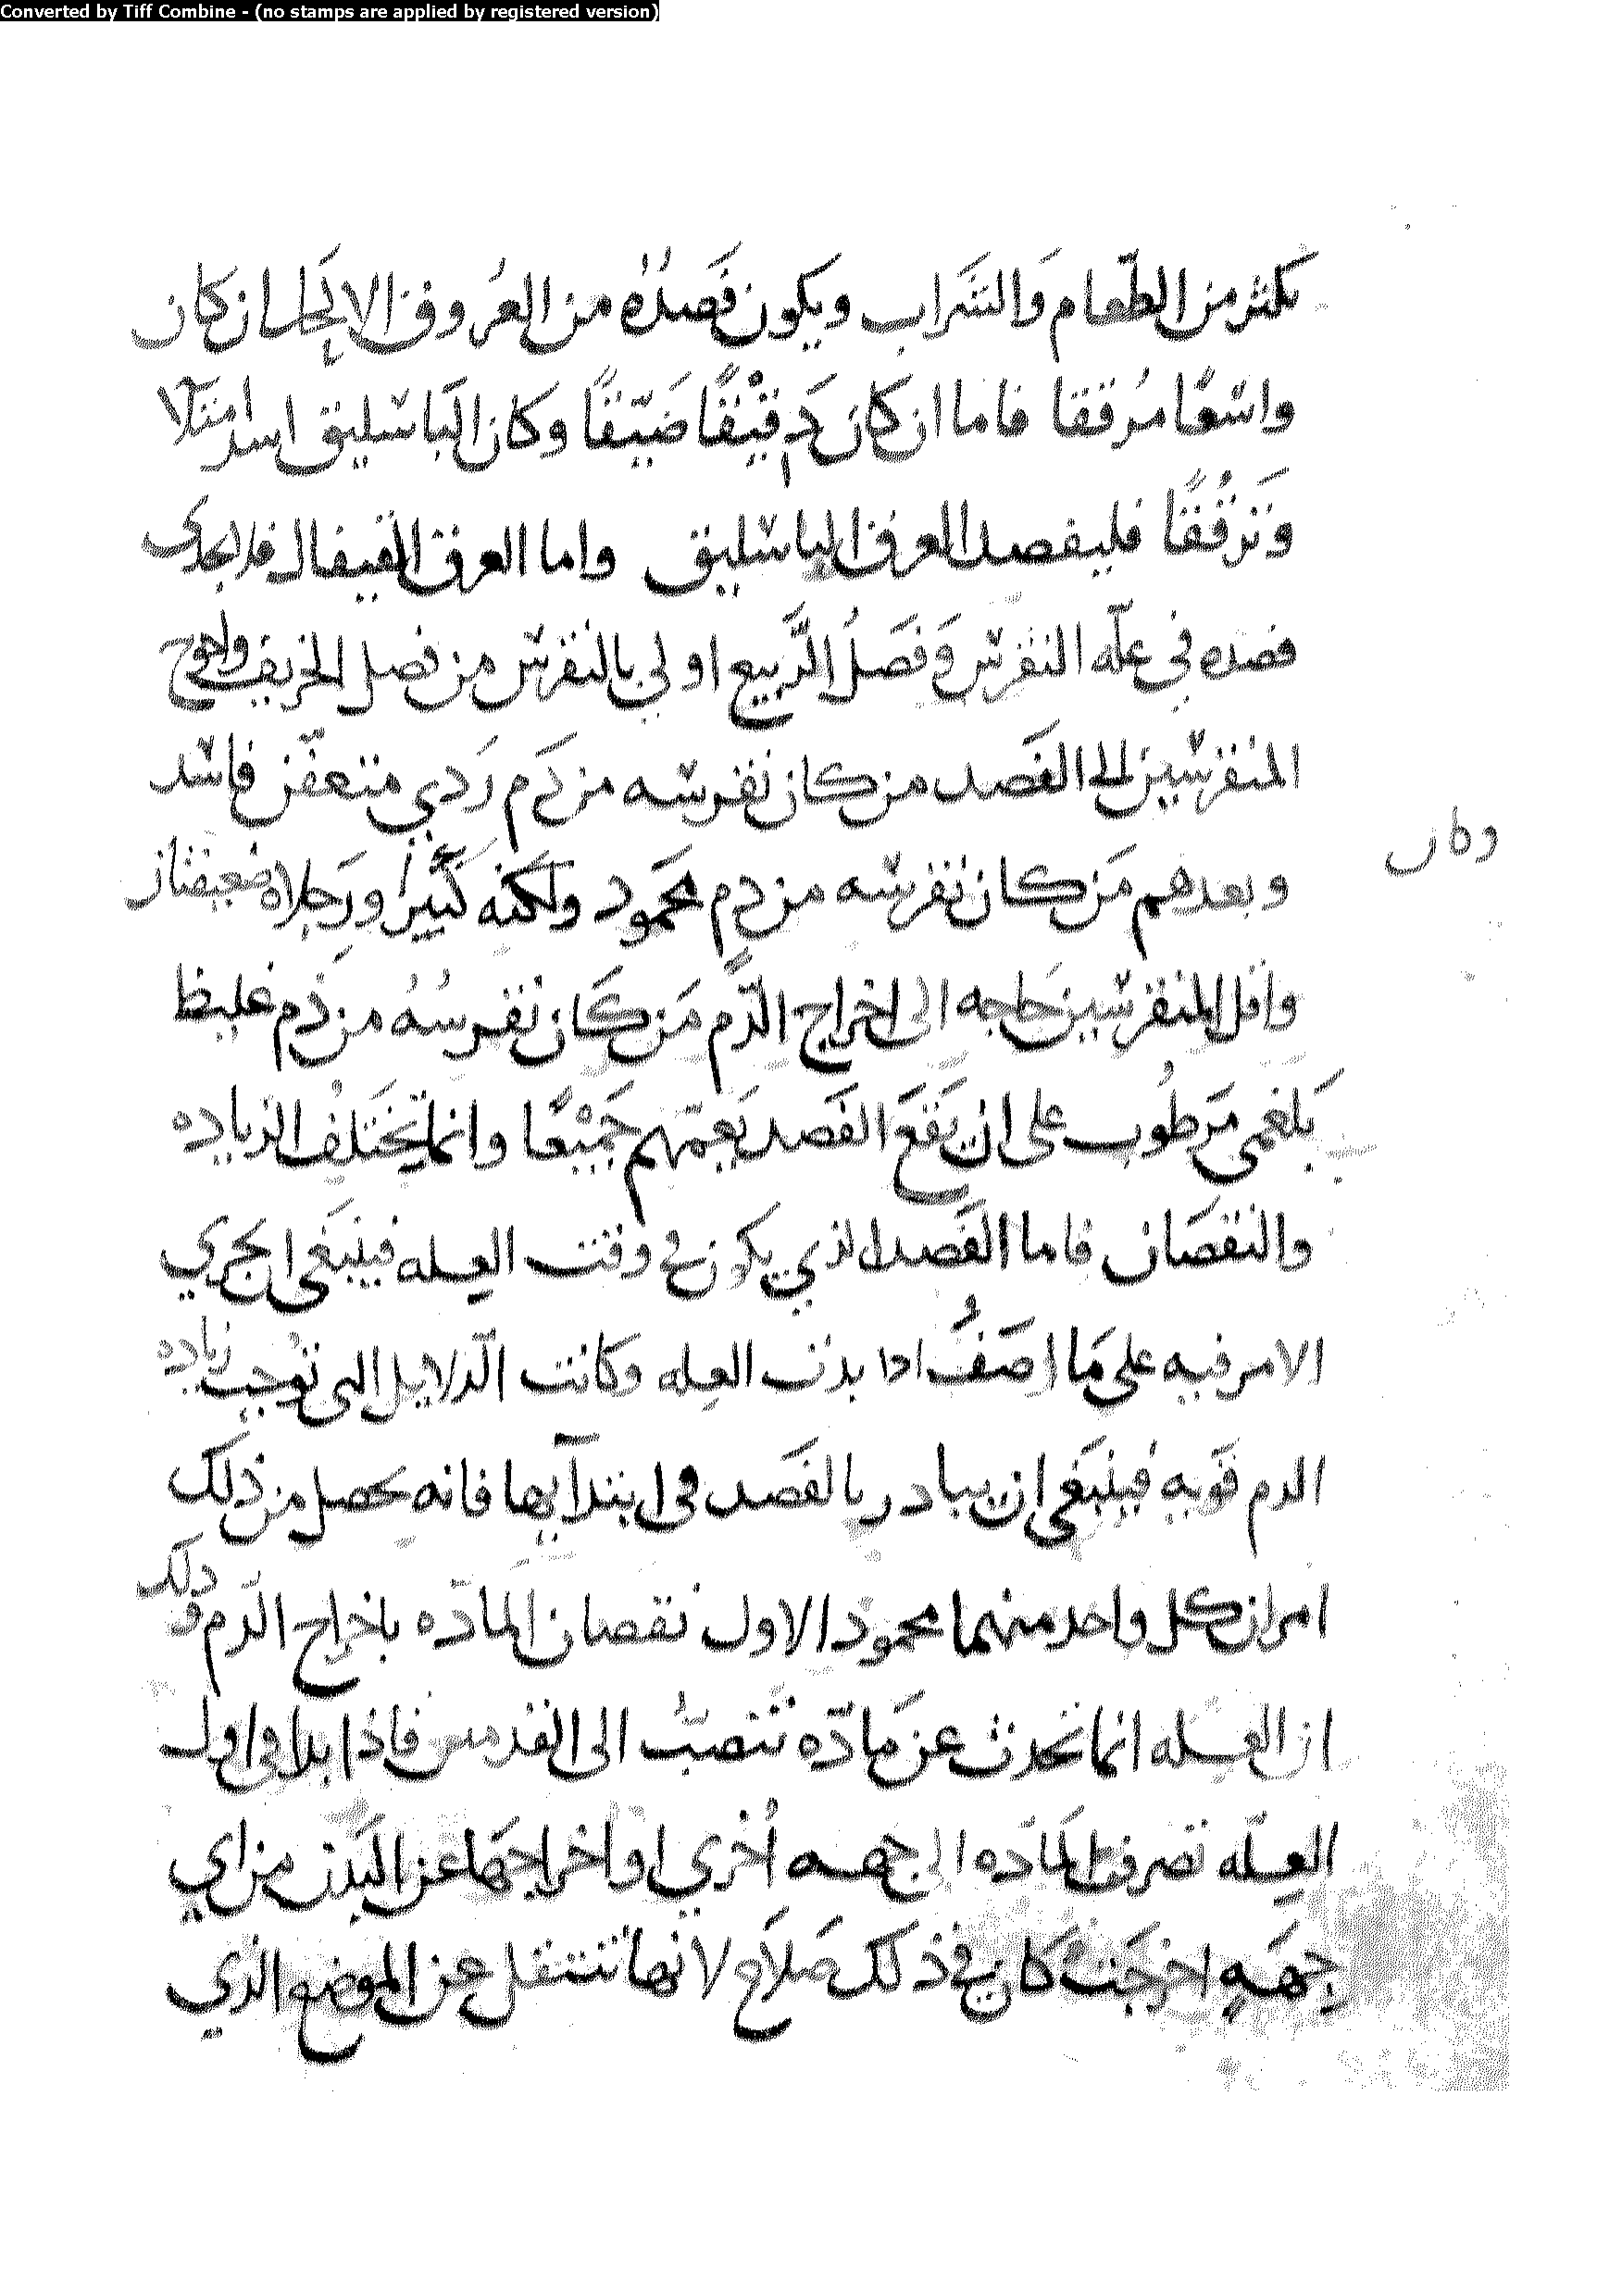 Converted by Tiff Combine - (no stamps are applied by registered version)
يكثر من الطّعام وَالشَراب ويكون فَصدُهُ من العُروق الاكحل ان كان
واسعًا مُرققا فاما ان كان دَقيْقًا ضَيّقًا وكان البَاسليق اسد امتلآ
وَتزقُقًا فليفصد العرق الباسليق واما العرق القيفال فلا يجدى
فصده في علّه النقرس وَفَصلُ الرَّبيع اولي بالنقرس من فصل الخريف واحوج
المنقرسين الى الفَصد من كان نقرسه من دَم رَدي متعفّن فاسد
وكان
وبعدهم مَن كان نقرسه من دم محَمود ولكنه كَثيرًا ورَجلاه ضعيفتان
واقل المنقرسين حَاجه الى اخراج الدّم مَن كَان نقرسُهُ من دَم غليظ
بَلغمى مَرطُوب على ان يَقَعَ الفَصد يَعمّهم جَميْعًا وانما تختَلفُ الزياده
والنقصَان فاما الفَصد الذي يكون في وقت العله فينبَغى ا يجري
الامر فيه على مَا اصَفُ اذا بدت العله وكانت الدّلايل التى توجب زياده
الدم قَويه فينبَغى ان يبادر بالفَصد فى ابتدآيها فانه يحصل من ذلك
امران كل واحد منهما محمود الاول نقصان المادّه باخراج الدّم وذلك
ان العله انما تحدث عن مَادّه تنصَبُّ الى القدمين فاذا بدا فى اول
العله تصرفت المَادّه الى جهه اُخري او اخراجهَا عن البَدن من اي
جهَهٍ اخرجَت كَان في ذلك صَلاَح لانها تنتقل عن الموضع الذي